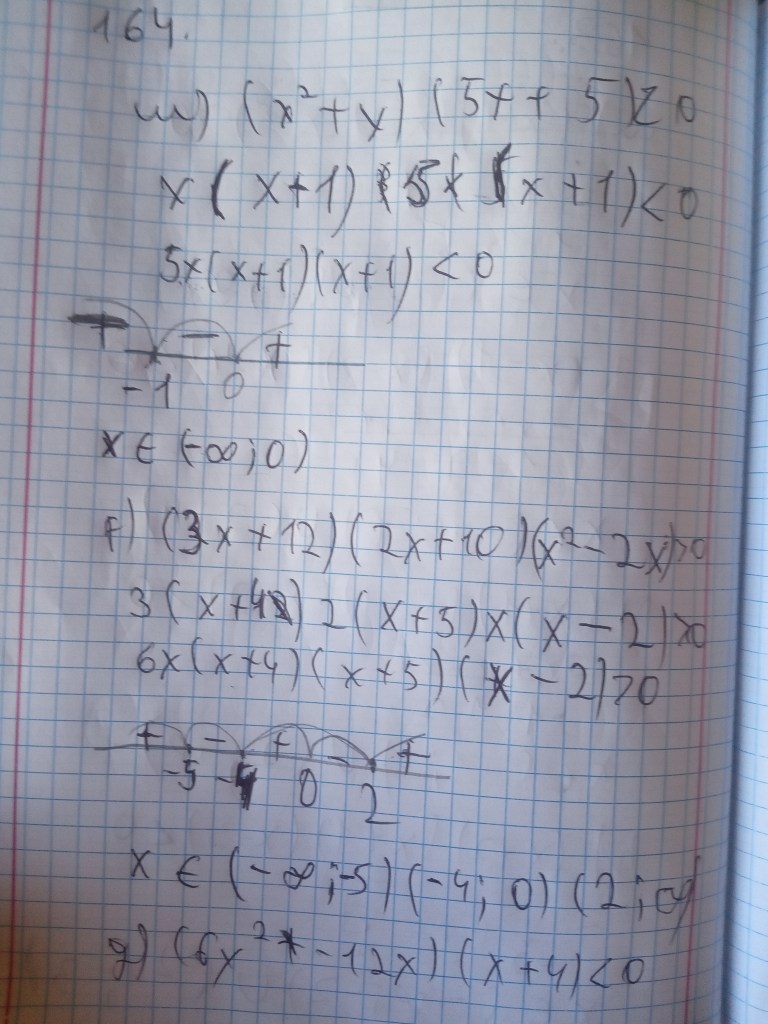 164.
ш) (x²+x)(5x+5)<0
x(x+1)5(x+1)<0
5x(x+1)(x+1)<0
− +
-1 0
x∈(-∞;0)
(3x+12)(2x+10)(x²-2x)>0
3(x+4)2(x+5)x(x-2)>0
6x(x+4)(x+5)(x-2)>0
+ − + − +
-5 -4 0 2
x∈(-∞;-5)(-4;0)(2;∞)
g) (6x²-12x)(x+4)<0